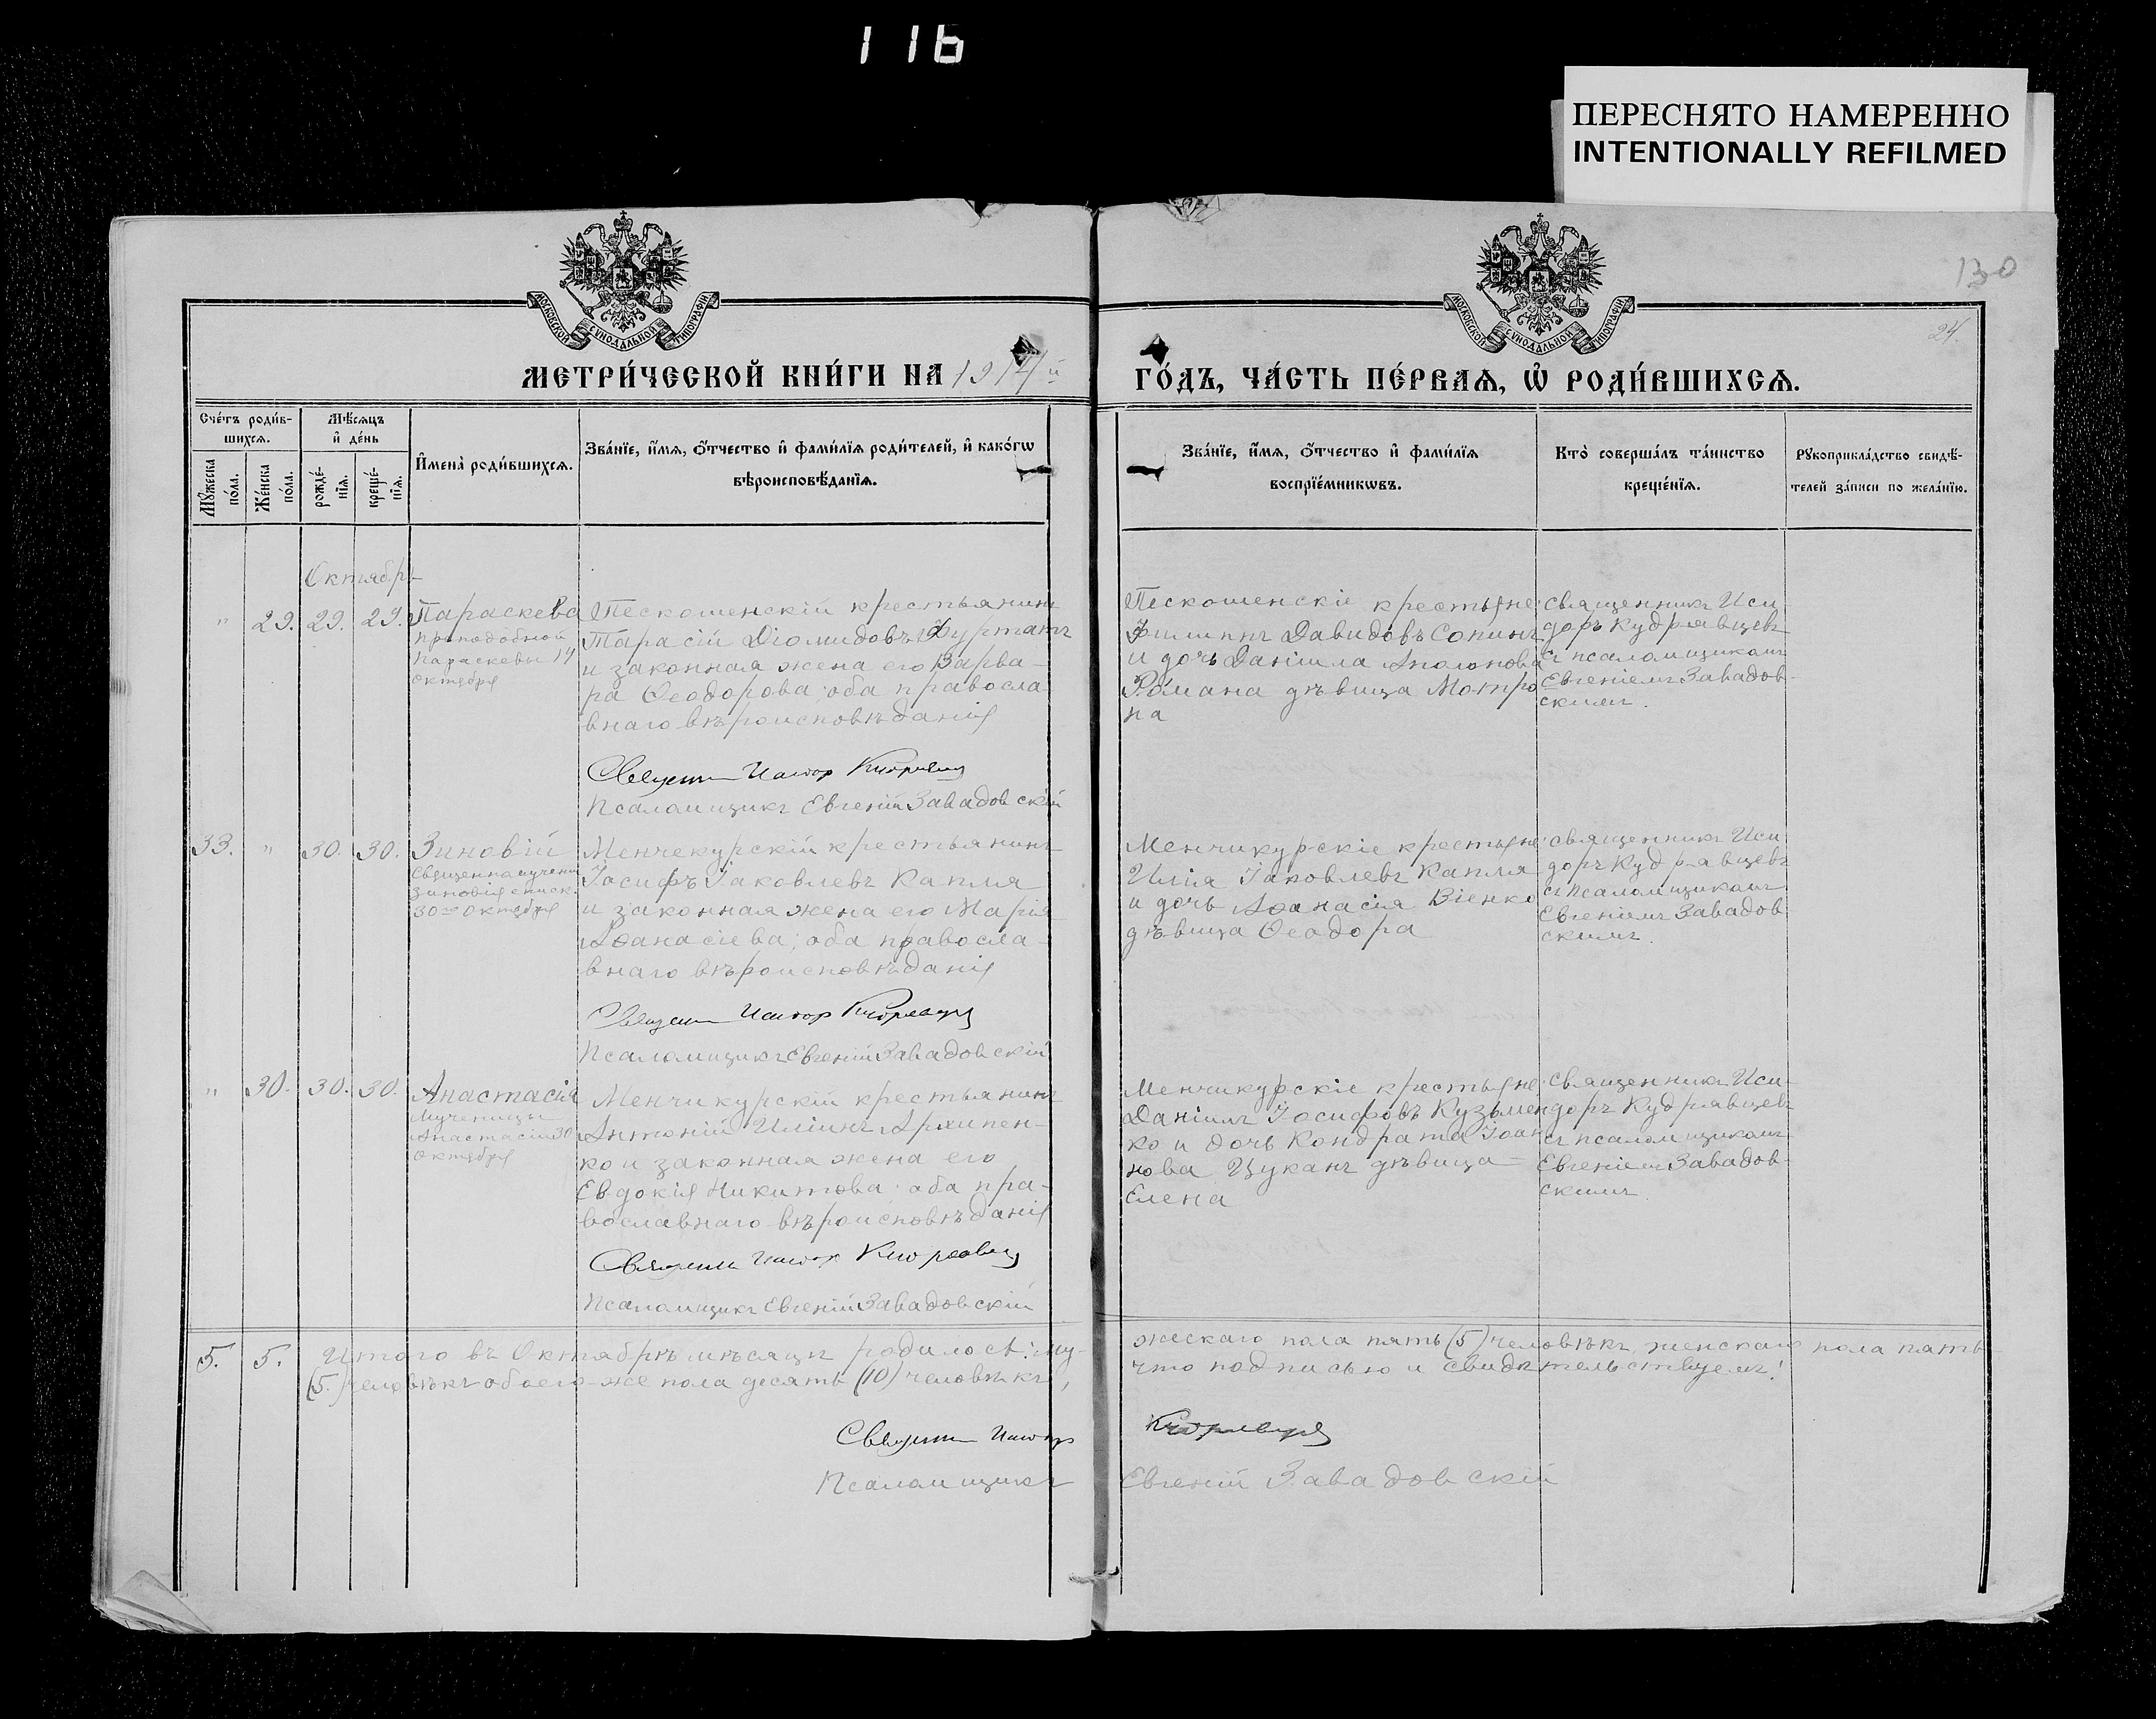 116
ПЕРЕСНЯТО НАМЕРЕННО
INTENTIONALLY REFILMED
130
24.
МОСКОВСКОЙ СѴНОДАЛЬНОЙ ТИПОГРАФІИ
МОСКОВСКОЙ СѴНОДАЛЬНОЙ ТИПОГРАФІИ
МЕТРИ́ЧЕСКОЙ КНИ́ГИ НА 1914й
ГО́ДЪ, ЧА́СТЬ ПЕ́РВАѦ, Ѡ҆ РОДИ́ВШИХСѦ.
Сче́тъ роди́в-
шихсѧ.
Мѣ́сѧцъ
и҆ де́нь
Мꙋ́жеска по́ла.
Же́нска по́ла.
рожде́-нїѧ.
креще́-нїѧ.
И҆мена̀ роди́вшихсѧ.
Зва́нїе, и҆́мѧ, ѻ҆́тчество и҆ фами́лїѧ роди́телей, и҆ како́гѡ
вѣроисповѣ́данїѧ.
Зва́нїе, и҆́мѧ, ѻ҆́тчество и҆ фами́лїѧ
воспрїе́мникѡвъ.
Кто̀ соверша́лъ та́инство
креще́нїѧ.
Рꙋкоприкла́дство свидѣ́-
телей за́писи по жела́нїю.
Октябрь
" 29. 29. 29. Параскева
преподобной
Параскевы 14
октября
Пескошенскій крестьянинъ
Тарасій Діомидовъ Фурманъ
и законная жена его Варва-
ра Ѳеодорова; оба правосла-
внаго вѣроисповѣданія
Священ Исидор Кудрявцев
Псаломщикъ Евгеній Завадовскій
Пескошенскіе крестьяне:
Филиппъ Давидовъ Сопинъ
и дочь Даніила
Романа дѣвица Матро
на
священникъ Иси
доръ Кудрявцевъ
съ псаломщикомъ
Евгеніемъ Завадов-
скимъ.
33. " 30. 30. Зиновій
Священномучени
Зиновія еписк.
30го октября
Менчекурскій крестьянинъ
Іосифъ Іаковлевъ Капля
и законная жена его Марія
Аѳанасіева; оба правосла-
внаго вѣроисповѣданія
Священ Исидор Кудрявцев
Псаломщикъ Евгеній Завадовскій
Менчикурскіе крестьяне:
Илія Іаковлевъ Капля
и дочь Аѳанасія Віенко
дѣвица Ѳеодора
священникъ Иси
доръ Кудрявцевъ
съ псаломщикомъ
Евгеніемъ Завадов
скимъ.
" 30. 30. 30. Анастасія
Мученицы
Анастасіи 30
октября
Менчикурскій крестьянинъ
Антоній Иліинъ Архипен-
ко и законная жена его
Евдокія Никитова; оба пра-
вославнаго вѣроисповѣданія
Священ Исидор Кудрявцев
Псаломщикъ Евгеній Завадовскій
Менчикурскіе крестьяне:
Даніилъ Іосифовъ Кузьмен
ко и дочь Кондрата Іоан
нова Цуканъ дѣвица
Елена
священникъ Иси-
доръ Кудрявцевъ
съ псаломщикомъ
Евгеніемъ Завадов-
скимъ.
5. 5. Итого въ Октябрѣ мѣсяцѣ родилось: му-
жескаго пола пять (5) человѣкъ, женскаго пола пять
(5) человѣкъ обоего-же пола десять (10) человѣкъ,
что подписью и свидѣтельствуемъ!
Священ Исидор Кудрявцев
Псаломщикъ Евгеній Завадовскій